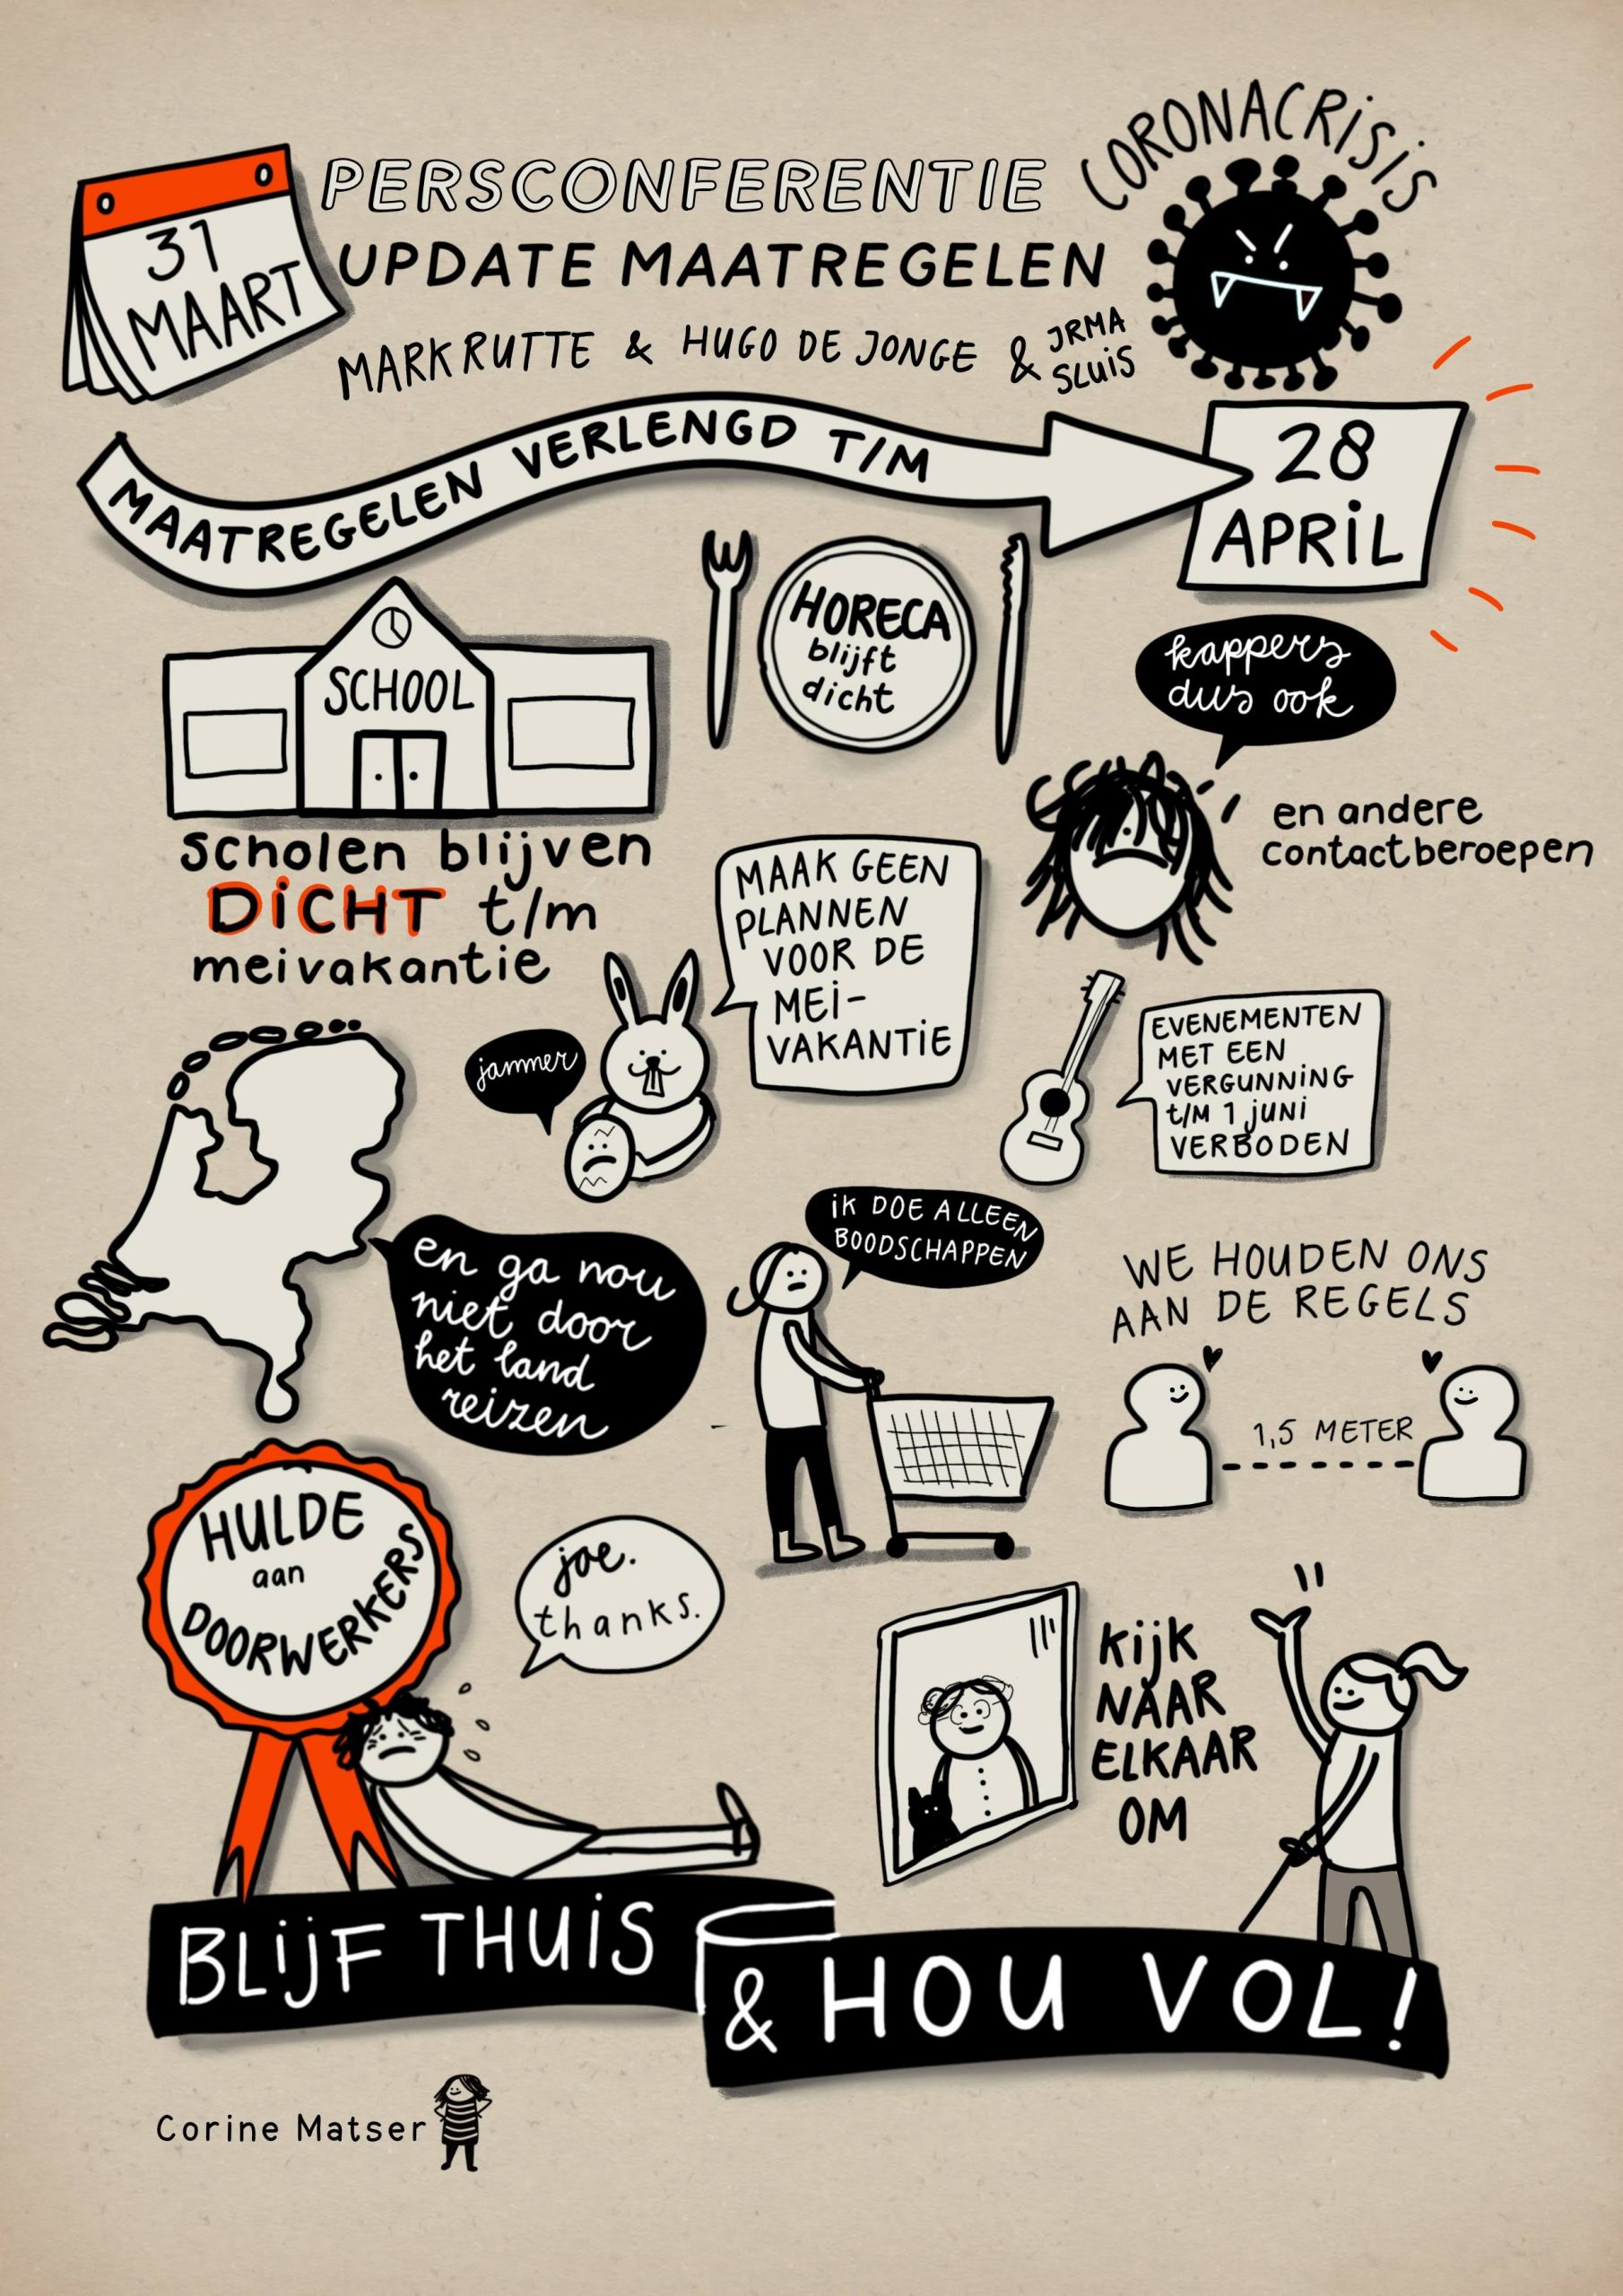 31
MAART
PERSCONFERENTIE
UPDATE MAATREGELEN
MARK RUTTE & HUGO DE JONGE & IRMA
SLUIS
CORONACRISIS
MAATREGELEN VERLENGD T/M
28
APRIL
SCHOOL
scholen blijven
DICHT t/m
meivakantie
HORECA
blijft
dicht
kappers
dus ook
en andere
contactberoepen
MAAK GEEN
PLANNEN
VOOR DE
MEI-
VAKANTIE
jammer
EVENEMENTEN
MET EEN
VERGUNNING
t/M 1 juni
VERBODEN
en ga nou
niet door
het land
reizen
iK DOE ALLEEN
BOODSCHAPPEN
WE HOUDEN ONS
AAN DE REGELS
1,5 METER
HULDE
aan
DOORWERKERS
joe.
thanks.
Kijk
NAAR
ELKAAR
OM
BLIJF THUIS
& HOU VOL!
Corine Matser